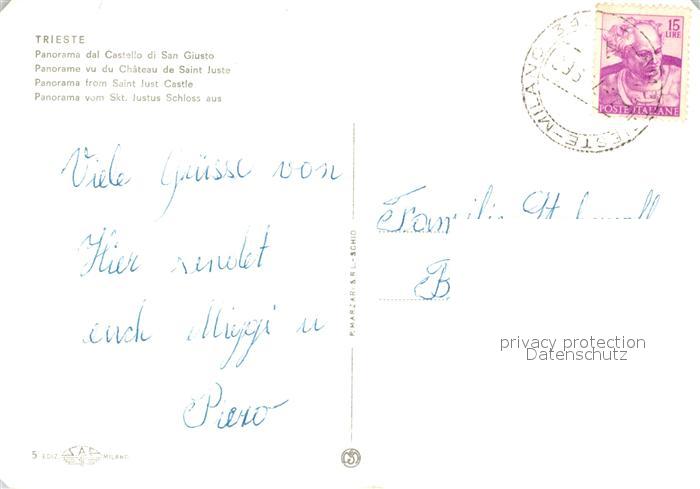 TRIESTE
Panorama dal Castello di San Giusto
Panorame vu du Château de Saint Juste
Panorama from Saint Just Castle
Panorama vom Skt. Justus Schloss aus
15
LIRE
POSTE ITALIANE
TRIESTE-MILANO
Viele Grüsse von
Hier sendet
euch Miggi u
Piero
P. MARZARI S.R.L.-SCHIO
Familie
B
privacy protection
Datenschutz
5 EDIZ. SAF MILANO